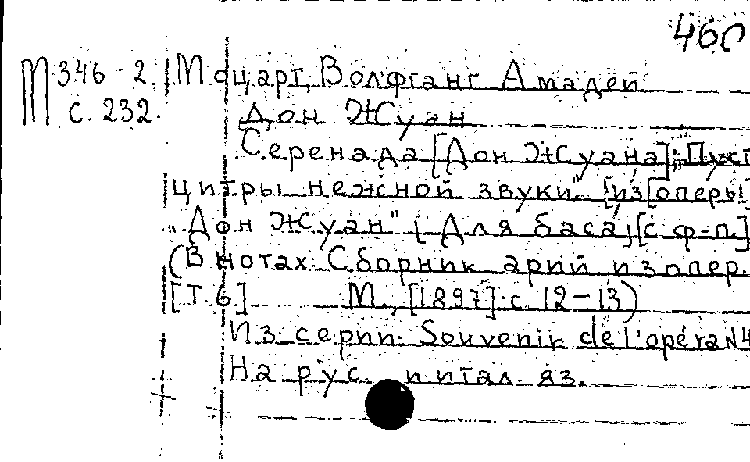 460
М 346-2 Моцарт, Вольфганг Амадей
с. 232. Дон Жуан
Серенада [Дон Жуана]: „Пуст
цитры нежной звуки" [из оперы]
„Дон Жуан" [Для баса, [с ф-п.]
(В нотах: Сборник арий из опер.
[Т. 6] М., [1897] с. 12-13)
Из серии: Souvenir de l'opéra N4
На рус. и итал. яз.